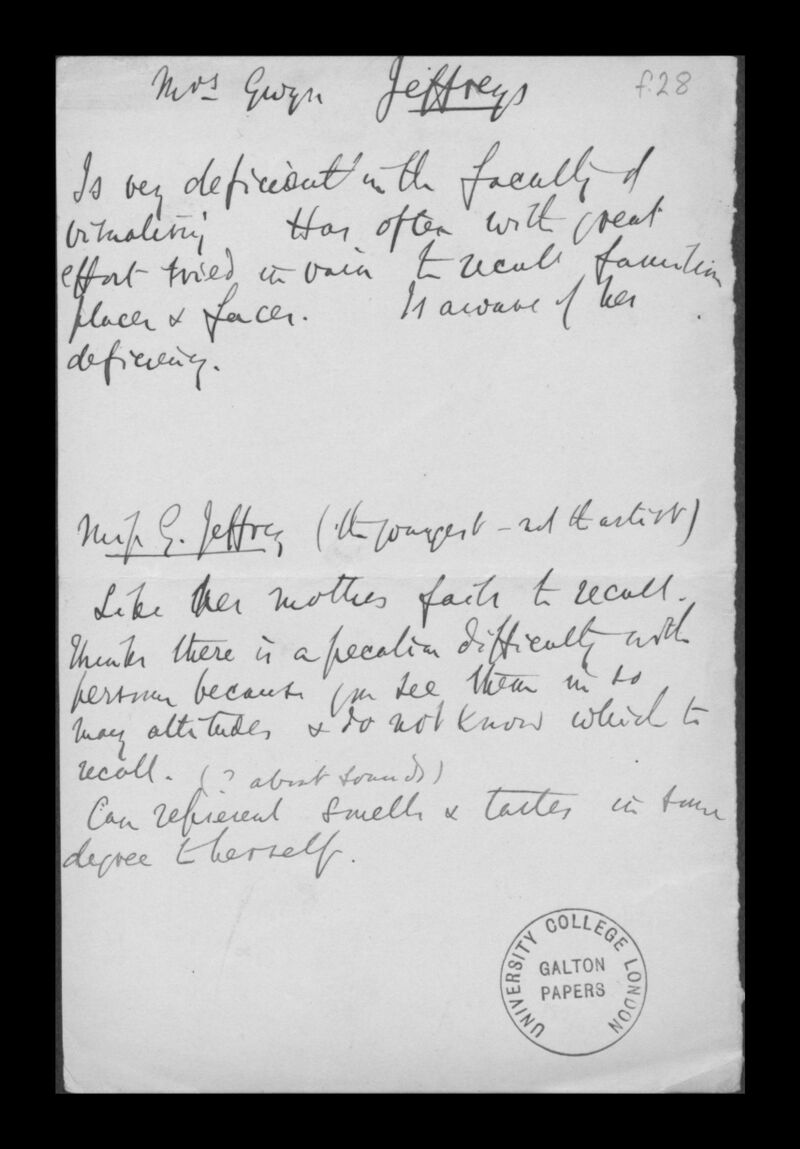 Mrs Gwyn Jeffreys
f.28
Is very deficient in the faculty of
visualising Has often with great
effort tried in vain to recall familiar
places & faces. Is aware of her
deficiency.
Miss G. Jeffreys (the youngest – not the artist)
Like her mother fails to recall.
Thinks there is a peculiar difficulty with
persons because you see them in so
many attitudes & do not know which to
recall. (? about sounds)
Can represent smells & tastes in some
degree to herself.
UNIVERSITY COLLEGE LONDON
GALTON
PAPERS